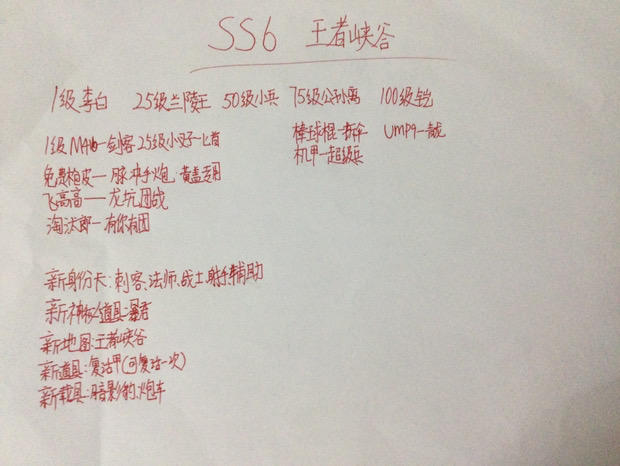 SS6 王者峡谷
1级李白 25级兰陵王 50级小兵 75级公孙离 100级铠
1级M416-剑客 25级小刀-匕首 棒球棍-拆 UMP9-靓
免费枪皮-脉冲手炮,黄盖专用 机甲-超级兵
飞高高——龙坑团战
淘汰郎-有你有团
新身份卡:刺客、法师、战士、射手、辅助
新神秘道具:暴君
新地图:王者峡谷
新道具:复活甲(可复活一次)
新载具:暗影豹、炮车